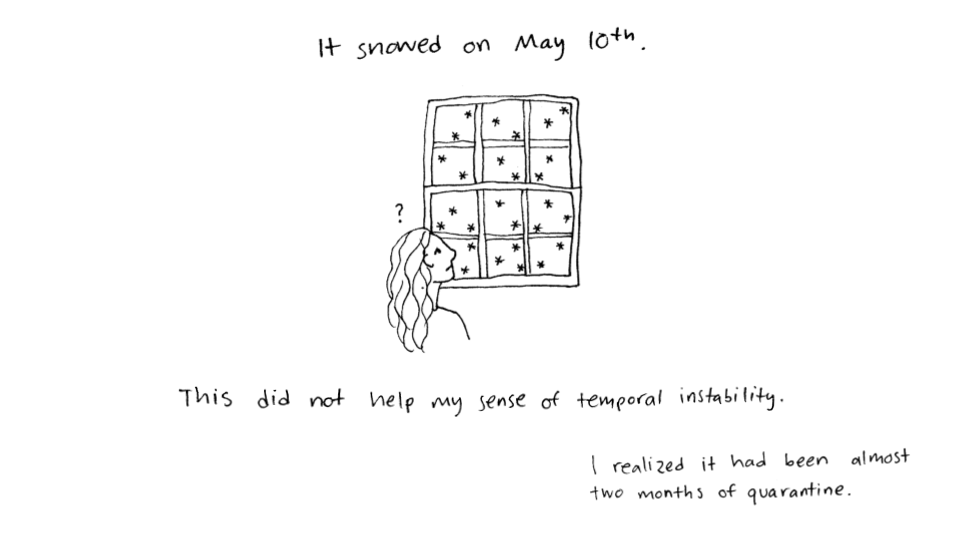 It snowed on May 10th.
?
This did not help my sense of temporal instability.
I realized it had been almost
two months of quarantine.